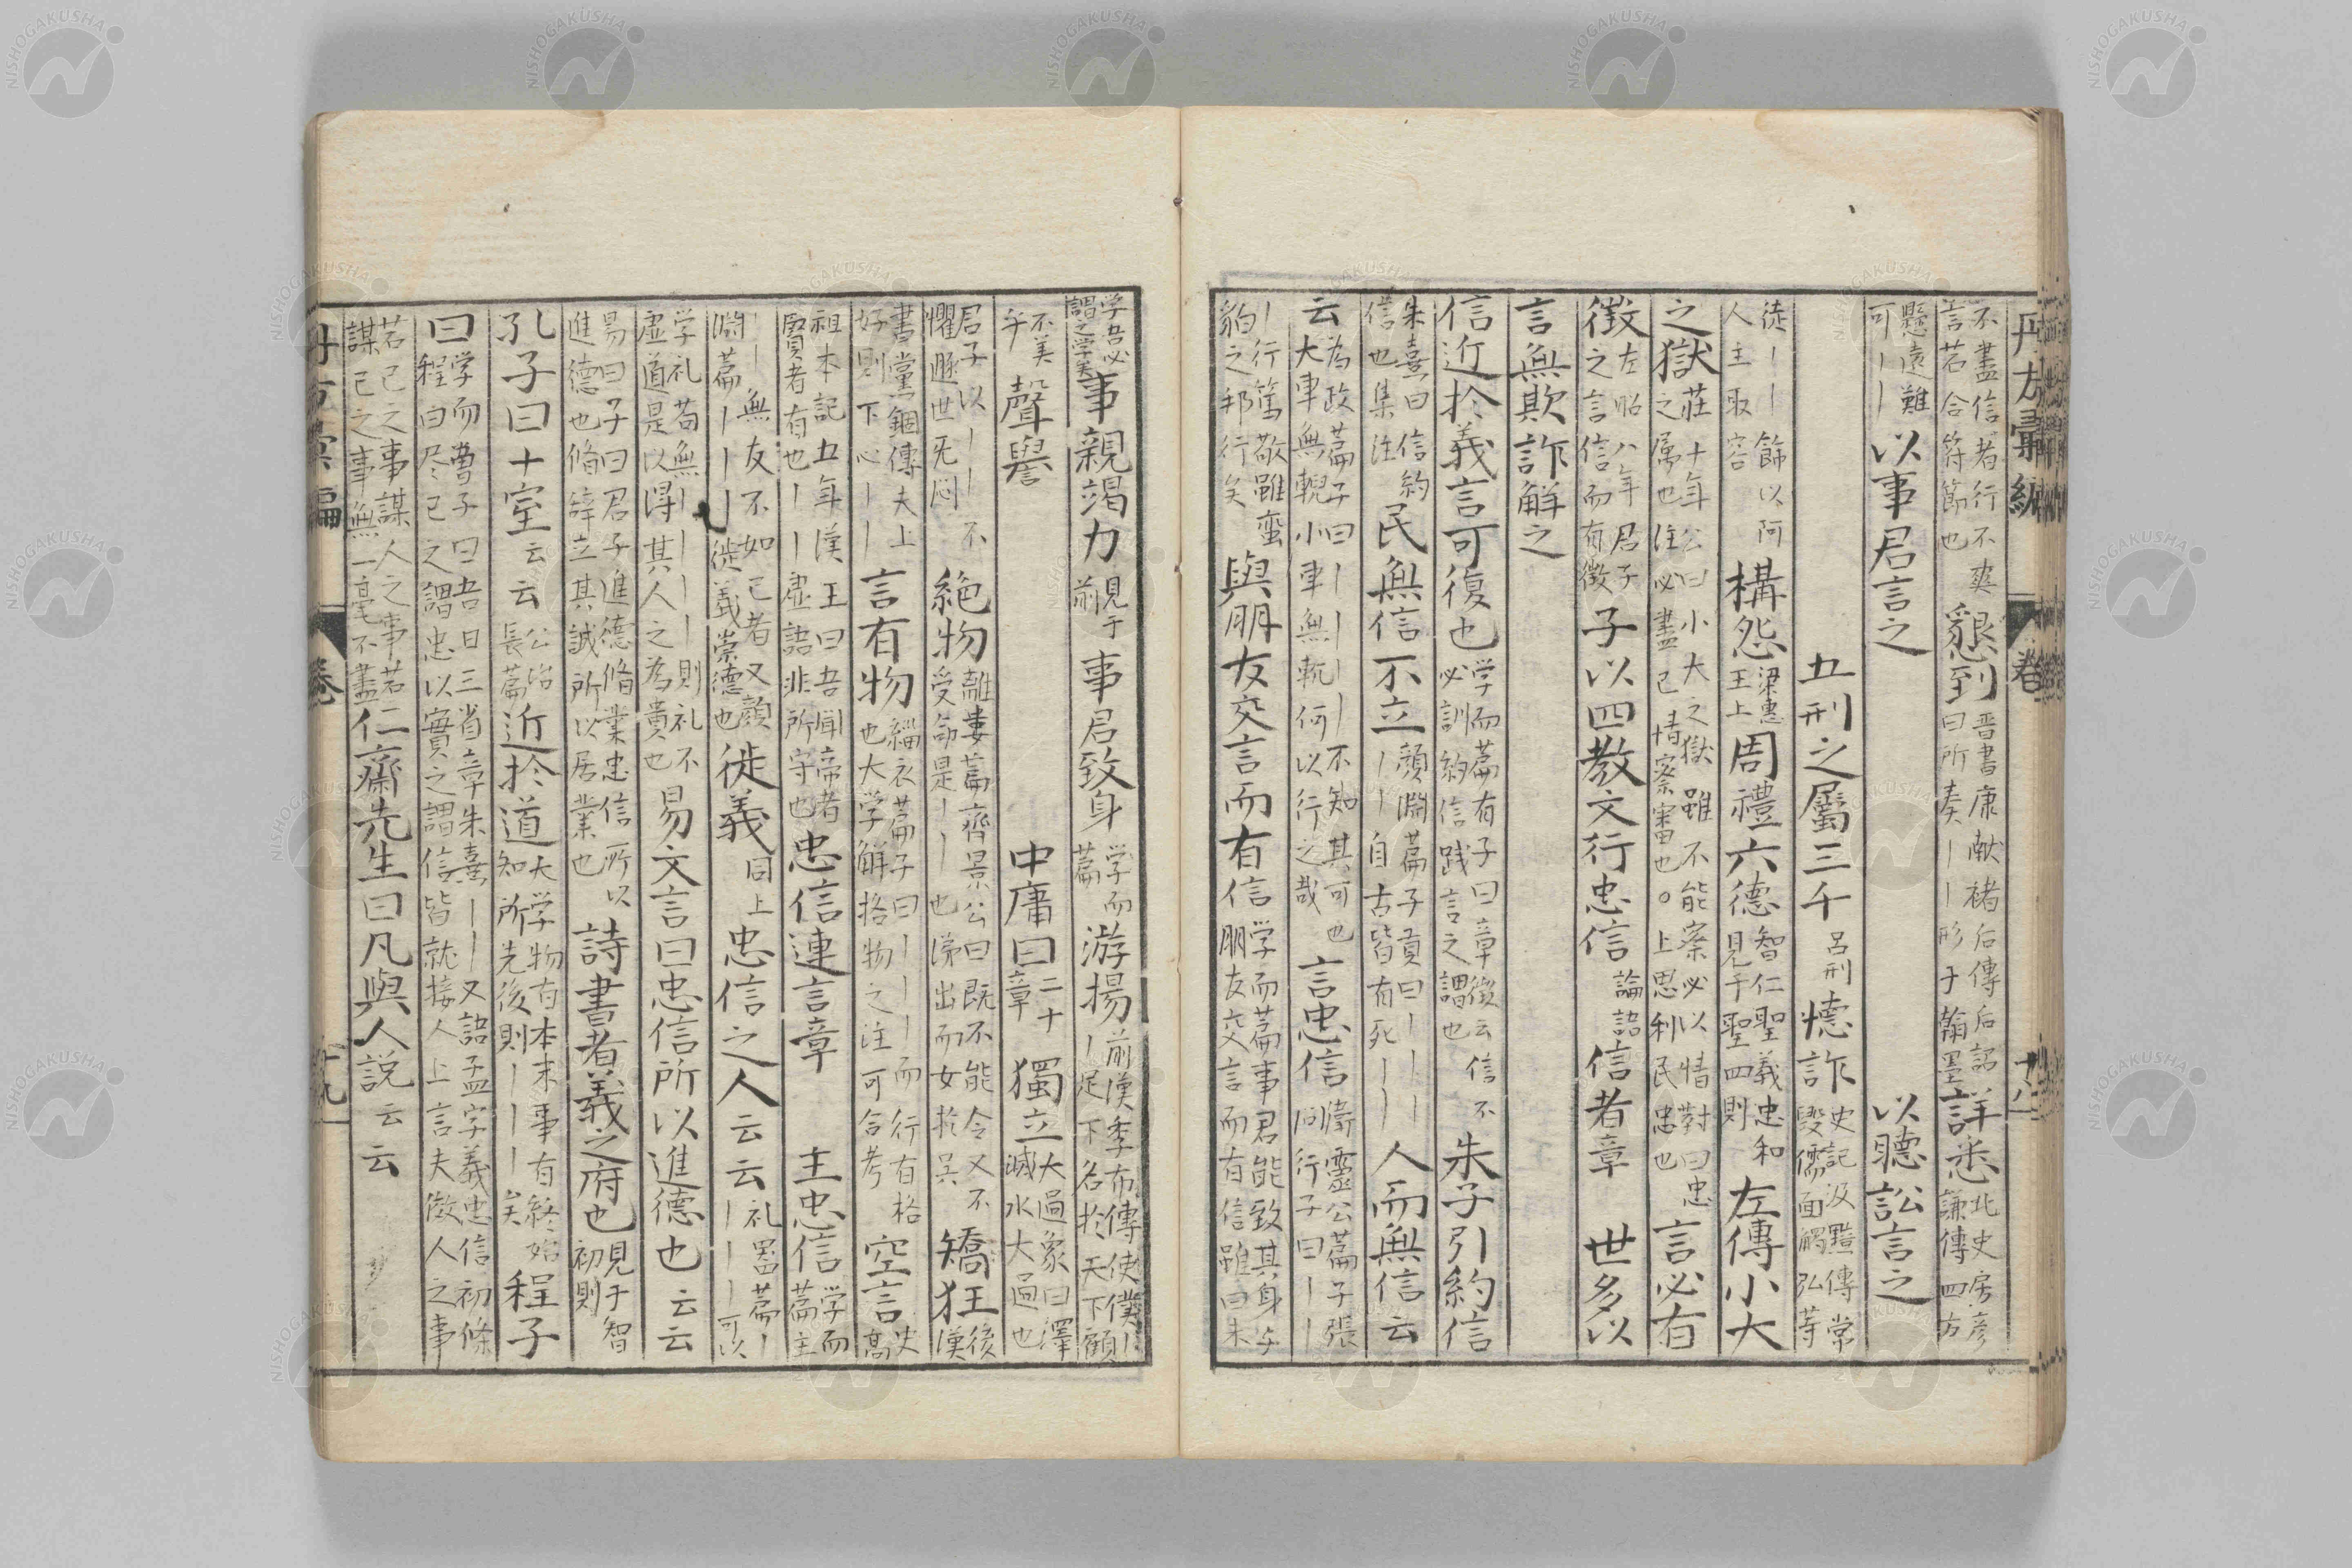 不盡信者行不爽
言若合符節也
懇到
晋書康献褚后傳后詔
曰所奏丨丨形于翰墨
詳悉
北史房彦
謙傳四方
懸遠難
可丨丨
以事君言之
以聽訟言之
五刑之屬三千
呂刑
憓詐
史記汲黯傳常
毀儒面觸弘等
徒丨丨飾以阿
人主取容
構怨
梁惠
王上
周禮六德
智仁聖義忠和
見于聖四則
左傳小大
之獄
莊十年公曰小大之獄雖不能察必以情對曰忠
之属也注必盡己情察審也。上思利民忠也
言必有
徵
左昭八年君子
之言信而有徵
子以四教文行忠信
論語
信者章
世多以
言無欺詐解之
信近於義言可復也
学而篇有子曰章後云信不
必訓約信践言之謂也
朱子引約信
朱熹曰信約
信也集注
民無信不立
顔淵篇子貢曰丨丨丨
丨丨自古皆有死丨丨
人而無信云
云
為政篇子曰丨丨丨丨不知其可也
大車無輗小車無軏何以行之哉
言忠信
衛靈公篇子張
問行子曰丨丨
丨行篤敬雖蛮
貊之邦行矣
與朋友交言而有信
学而篇事君能致其身与
朋友交言而有信雖曰未
学吾必
謂之学矣
事親竭力
見于
前
事君致身
学而
篇
游揚
前漢季布傳使僕丨
丨足下名於天下顧
不美
乎
聲譽
中庸曰
二十
章
獨立
大過象曰澤
滅水大過也
君子以丨丨不
懼遯世无悶
絶物
離婁篇齊景公曰既不能令又不
受命是丨丨也涕出而女於吴
矯狂
後
漢
書黨錮傳夫上
好則下心丨丨
言有物
緇衣篇子曰丨丨丨而行有格
也大学解格物之注可合考
空言
史
高
祖本記五年漢王曰吾聞帝者
賢者有也丨丨虚語非所守也
忠信連言章
主忠信
学而
篇主
丨丨無友不如己者又顔
淵篇丨丨丨徙義崇德也
徙義
同上
忠信之人云云
礼器篇丨
丨丨丨可以
学礼苟無丨丨丨則礼不
虚道是以得其人之為貴也
易文言曰忠信所以進德也云云
易曰子曰君子進德脩業忠信所以
進德也脩辞立其誠所以居業也
詩書者義之府也
見于智
初則
孔子曰十室云云
公冶
長篇
近於道
大学物有本末事有終始
知所先後則丨丨丨矣
程子
曰
学而曽子曰吾日三省章朱熹丨丨又語孟字義忠信初條
程曰尽己之謂忠以實之謂信皆就接人上言夫做人之事
若己之事謀人之事若
謀己之事無一毫不盡
仁齋先生曰凡與人説云云